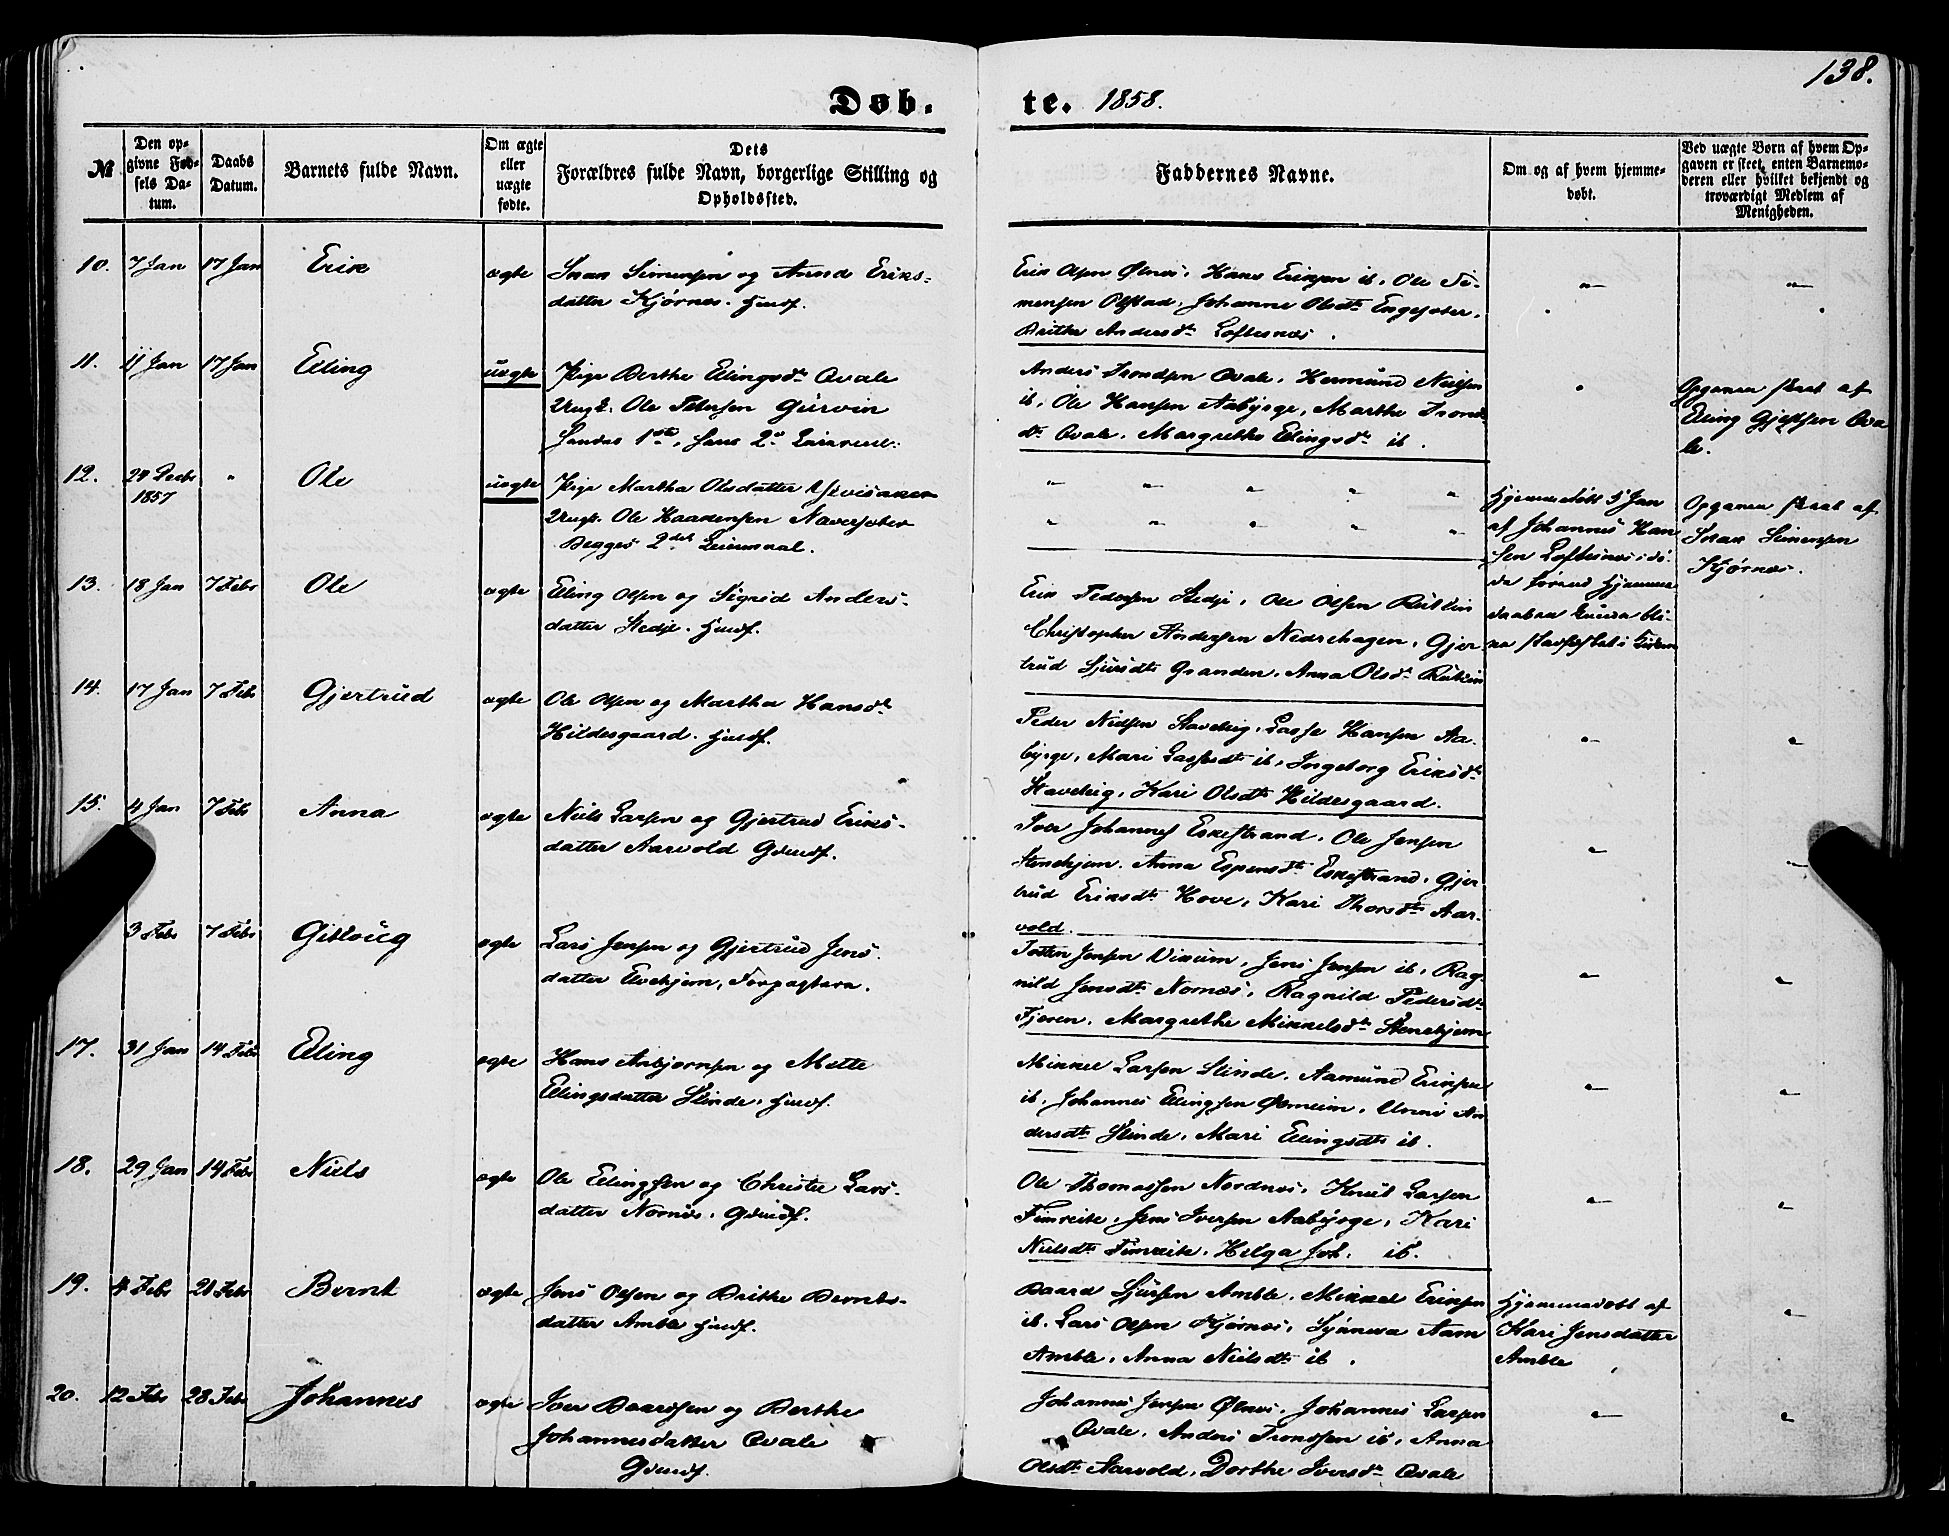 138.
Døb. te. 1858.
№
Den op-
givne Fød-
sels Da-
tum.
Daabs
Datum.
Barnets fulde Navn.
Om ægte
eller
uægte
fødte.
Dets
Forældres fulde Navn, borgerlige Stilling og
Opholdssted.
Faddernes Navne.
Om og af hvem hjemme-
døbt.
Ved uægte Børn af hvem Op-
gaven er skeet, enten Barnemo-
deren eller hvilket bekjendt og
troværdigt Medlem af
Menigheden.
10. 7 Jan 17 Jan Erik ægte Isaac Simensen og Anna Eriks-
datter Kjørnes. Husf.
Erik Olsen Ølnes, Hans Eriksen ib, Ole Si-
mensen Olstad, Johanne Olsdt Engesæter,
Brithe Andersdt Loftesnæs.
11. 11 Jan 17 Jan Elling uægte Pige Berthe Ellingsdt Qvale
Ungk. Ole Petersen Gurvin
Hendes 1ste, Hans 2d
Anders Trondsen Qvale, Hermund Nielsen
ib, Ole Hansen Aabjøge, Marthe Trons
dt Qvale, Margrethe Ellingsdt ib.
Opgaven skeet af
Elling Qva
le.
12. 1857 " Ole uægte Pige Martha Olsdatter
Ungk. Ole Haakensen Navarsæter
Begges 2det Leiermaal.
Hjemmedøbt 5 Jan
af Johannes Han
sen Loftesnæs
Opgaven skeet af
Isaac Simensen
Kjørnes.
13. 18 Jan 7 Febr Ole ægte Elling Olsen og Sigrid Anders-
datter Stedje. Husf.
Erik Pedersen Stedje, Ole Olsen Rutlin
Christopher Andersen Nedrehagen, Gjer
trud Sjursdt Granden, Anna Olsdt Rutlin
14. 17 Jan 7 Febr Gjertrud ægte Ole Olsen og Martha Hansdt
Hildesgaard. Husf.
Peder Nielsen Stavehig, Lasse Hansen Aa-
bjøge, Mari Lassesdt ib, Ingeborg Eriksdt
Stavehig, Kari Olsdt Hildesgaard.
15. 4 Jan 7 Febr Anna ægte Niels Larsen og Gjertrud Eriks-
datter Aarvold Gdmdf.
Iver Johannes Eskestrand, Ole Jensen
Stenehjem. Anna Espensdt Eskestrand, Gjer
trud Eriksdt Hove, Kari Thorsdt Aar-
vold.
3 Febr 7 Febr Gitloug ægte Lars Jensen og Gjertrud Jens-
datter Elvehjem, Forpagtere.
Tosten Jensen Vikum, Jens Jensen ib, Rag-
nild Jensdt Nornes, Ragnild Pedersdt
Fjæren, Margrethe Mikkelsdt Stenehjem
17. 31 Jan 14 Febr Elling ægte Hans Anbjørnsen og Mette
Ellingsdatter Slinde, Husf.
Mikkel Larsen Slinde, Aamund Eriksen
ib, Johannes Ellingsen Ølmeim, Unni An
dersdt Slinde, Mari Ellingsdt ib.
18. 29 Jan 14 Febr Niels ægte Ole Ellingsen og Christie Lars-
datter Nornes, Gdmdf.
Ole Thomassen Nordnes, Knut Larsen
Fimreite, Jens Iversen Aabjøge, Kari
Nielsdt Fimreite, Helga Joh. ib.
19. 4 Febr 21 Febr Bernt ægte Jens Olsen og Brithe Bernts-
datter Amble Husf.
Baard Sjursen Amble, Mikkel Eriksen
ib. Lars Olsen Kjørnes, Synneva Aam
Amble, Anna Nielsdt ib.
Hjemmedøbt af
Kari Jensdatter
Amble
20. 12 Febr 28 Febr Johannes ægte Iver Baardsen og Berthe
Johannesdatter Qvale
Gdmdf.
Johannes Jensen Ølnes, Johannes Larsen
Qvale, Anders Trondsen ib, Anna
Olsdt Aarvold, Dorthe Iversdt Qvale